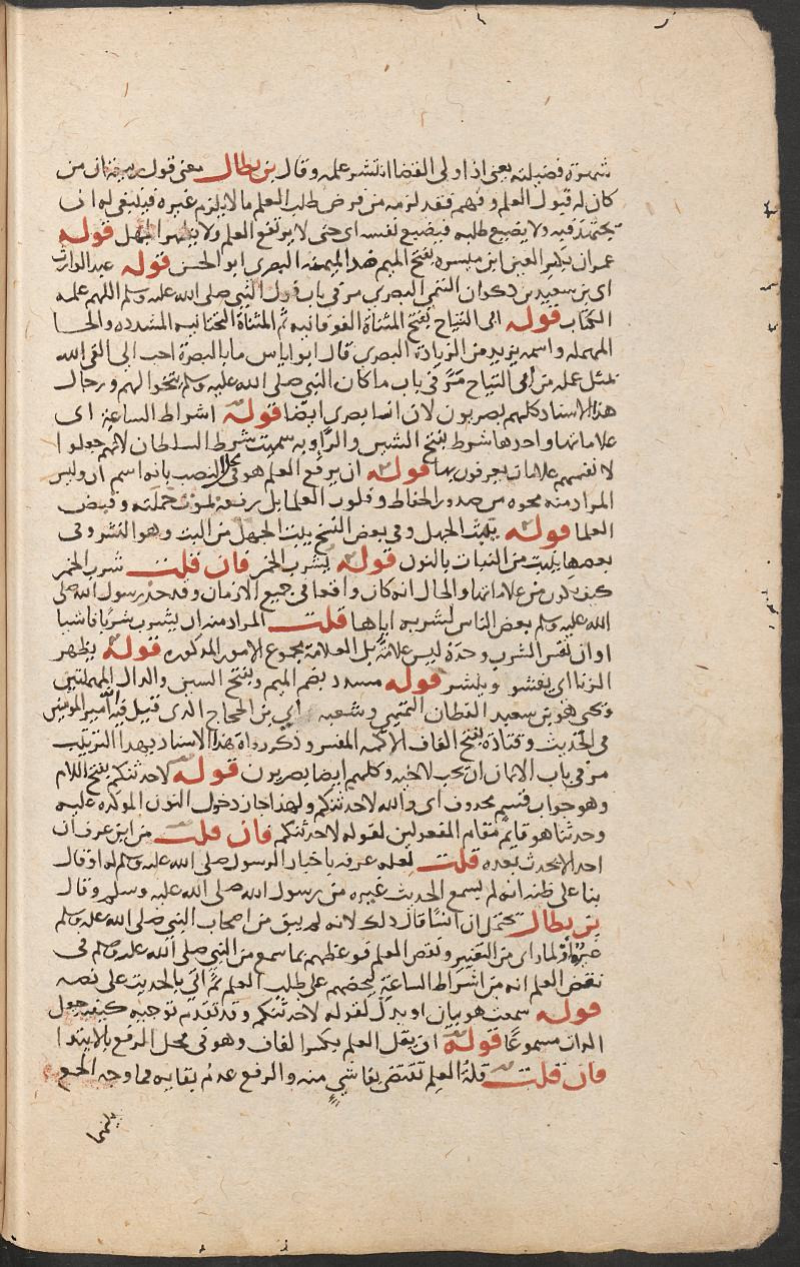 شهرة فضيلته يعنى اذا ولى القضا انتشر علمه وقال بن بطال معنى قول ربيعة ان من
كان له قبول العلم وفهم فقد لزمه من فرض طلب العلم ما لا يلزم غيره فينبغى له ان
يجتهد فيه ولا يضيع طلبه فيضيع نفسه اى حتى لا يرتفع العلم ولا يظهر الجهل قوله
عمران بكسر العين ابن ميسره بفتح الميم ضد الميمنة البصري ابو الحسن قوله عبد الوارث
اى بن سعيد بن ذكوان التميمى البصري مر فى باب قول النبي صلى الله عليه وسلم اللهم علمه
الكتاب قوله ابى التياح بفتح المثناة الفوقانيه ثم المثناة التحتانيه المشدده والحا
المهمله واسمه يزيد من الزيادة البصري قال ابو اياس ما بالبصرة احب الى ان القى الله
بمثل عمله من ابى التياح مر فى باب ما كان النبي صلى الله عليه وسلم يتخولهم ورجال
هذا الاسناد كلهم بصريون لان انسا بصري ايضا قوله اشراط الساعة اى
علاماتها واحدها شرط بفتح الشين والرا وبه سميت شرط السلطان لانهم جعلوا
لانفسهم علامات يعرفون بها قوله ان يرفع العلم هو فى محل النصب بانه اسم ان وليس
المراد منه محوه من صدور الحفاظ وقلوب العلما بل رفعه لموت حملته وقبض
العلما قوله يثبت الجهل وفى بعض النسخ يبث الجهل من البث وهو النشر وفى
بعضها ينبت من النبات بالنون قوله يشرب الخمر فان قلت شرب الخمر
كيف يكون من علاماتها والحال انه كان واقعا فى جميع الازمان وقد حد رسول الله صلى
الله عليه وسلم بعض الناس لشربه اياها قلت المراد منه ان يشرب شربا فاشيا
او ان نفس الشرب وحده ليس علامة بل العلامة مجموع الامور المذكوره قوله يظهر
الزنا اى يفشو وينتشر قوله مسدد بضم الميم وبفتح السين والدال المهملتين
ويحيى هو بن سعيد القطان التميمى وشعبه اى بن الحجاج الذى قيل فيه امير المومنين
فى الحديث وقتادة بفتح القاف الاكمه المفسر وذكر رواة هذا الاسناد بهذا الترتيب
مر فى باب الايمان ان يحب لاخيه وكلهم ايضا بصريون قوله لاحدثنكم بفتح اللام
وهو جواب قسم محذوف اى والله لاحدثنكم ولهذا جاز دخول النون الموكده عليه
وحدثنا هو قايم مقام المفعولين لقوله لاحدثنكم فان قلت من اين عرف ان
احدا لا يحدث بعده قلت لعله عرفه باخبار الرسول صلى الله عليه وسلم له او قال
بنا على ظنه انه لم يسمع الحديث غيره من رسول الله صلى الله عليه وسلم وقال
بن بطال يحتمل ان انسا قال ذلك لانه لم يبق من اصحاب النبي صلى الله عليه وسلم
غيره او لما راى من التغيير ونقص العلم فوعظهم بما سمع من النبي صلى الله عليه وسلم فى
نقص العلم انه من اشراط الساعة ليحضهم على طلب العلم ثم اتى بالحديث على نصه
قوله سمعت هو بيان او بدل لقوله لاحدثنكم وقد تقدم توجيه كيف جعل
الذات مسموعا قوله ان يقل العلم بكسر القاف وهو فى محل الرفع بالابتدا
فان قلت قلة العلم تقتضى بقا شي منه والرفع عدم بقايه فما وجه الجمع
بينهما